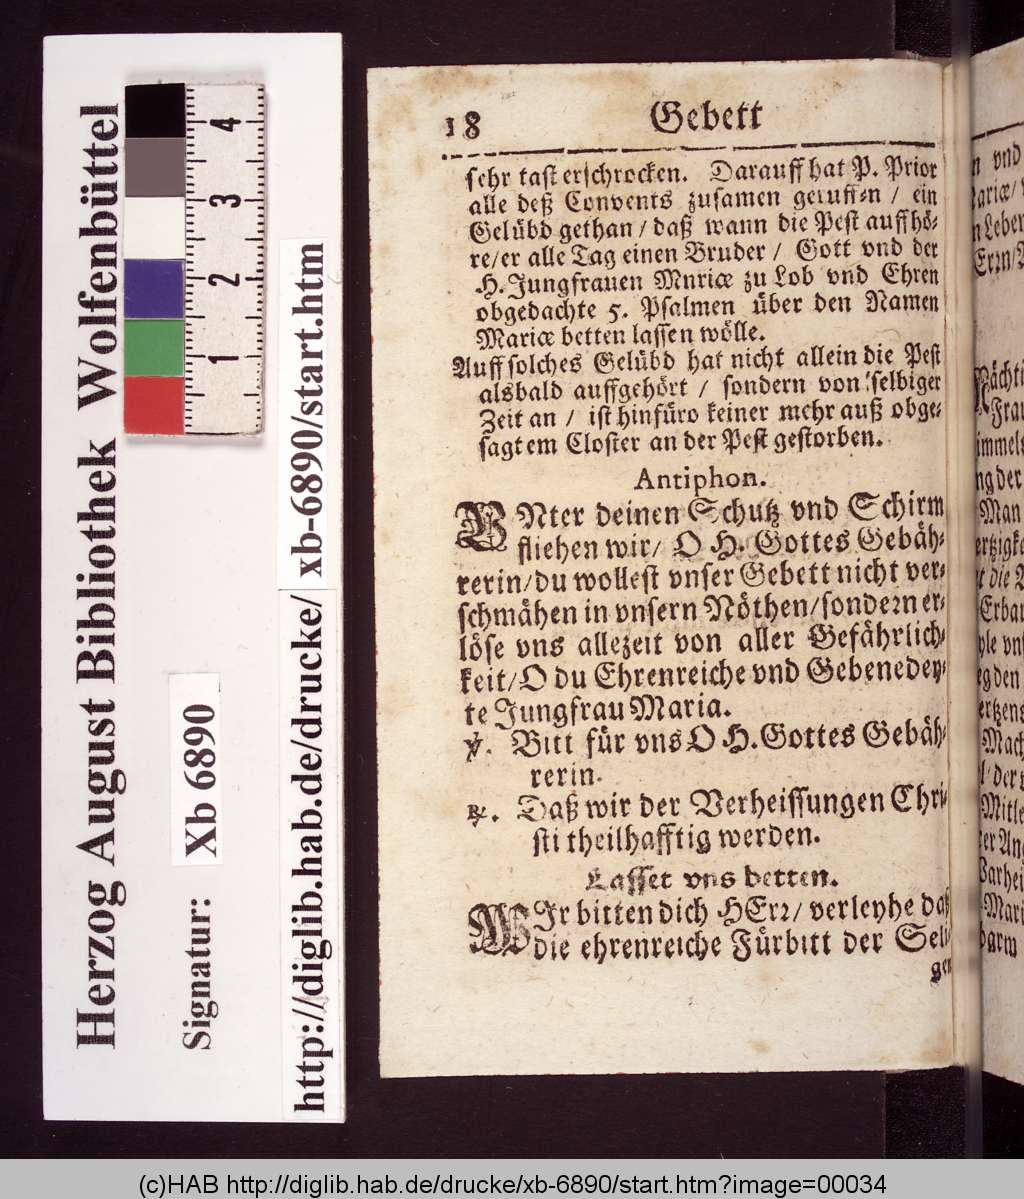 Herzog August Bibliothek Wolfenbüttel
Signatur:
Xb 6890
http://diglib.hab.de/drucke/
xb-6890/start.htm
4
3
2
1
18
Gebett
sehr fast erschrocken. Darauff hat P. Prior
alle deß Convents zusamen geruffen / ein
Gelübd gethan / daß wann die Pest auffhö-
re / er alle Tag einen Bruder / Gott vnd der
H. Jungfrauen Mnriæ zu Lob vnd Ehren
obgedachte 5. Psalmen über den Namen
Mariæ betten lassen wölle.
Auff solches Gelübd hat nicht allein die Pest
alsbald auffgehört / sondern von selbiger
Zeit an / ist hinfüro keiner mehr auß obge-
sagtem Closter an der Pest gestorben.
Antiphon.
VNter deinen Schutz vnd Schirm
fliehen wir / O H. Gottes Gebäh-
rerin / du wollest vnser Gebett nicht ver-
schmähen in vnsern Nöthen / sondern er-
löse vns allezeit von aller Gefährlich-
keit / O du Ehrenreiche vnd Gebenedey-
te Jungfrau Maria.
℣. Bitt für vns O H. Gottes Gebäh-
rerin.
℟. Daß wir der Verheissungen Chri-
sti theilhafftig werden.
Lasset vns betten.
WIr bitten dich HErr / verleyhe daß
die ehrenreiche Fürbitt der Seli-
gen
(c)HAB http://diglib.hab.de/drucke/xb-6890/start.htm?image=00034